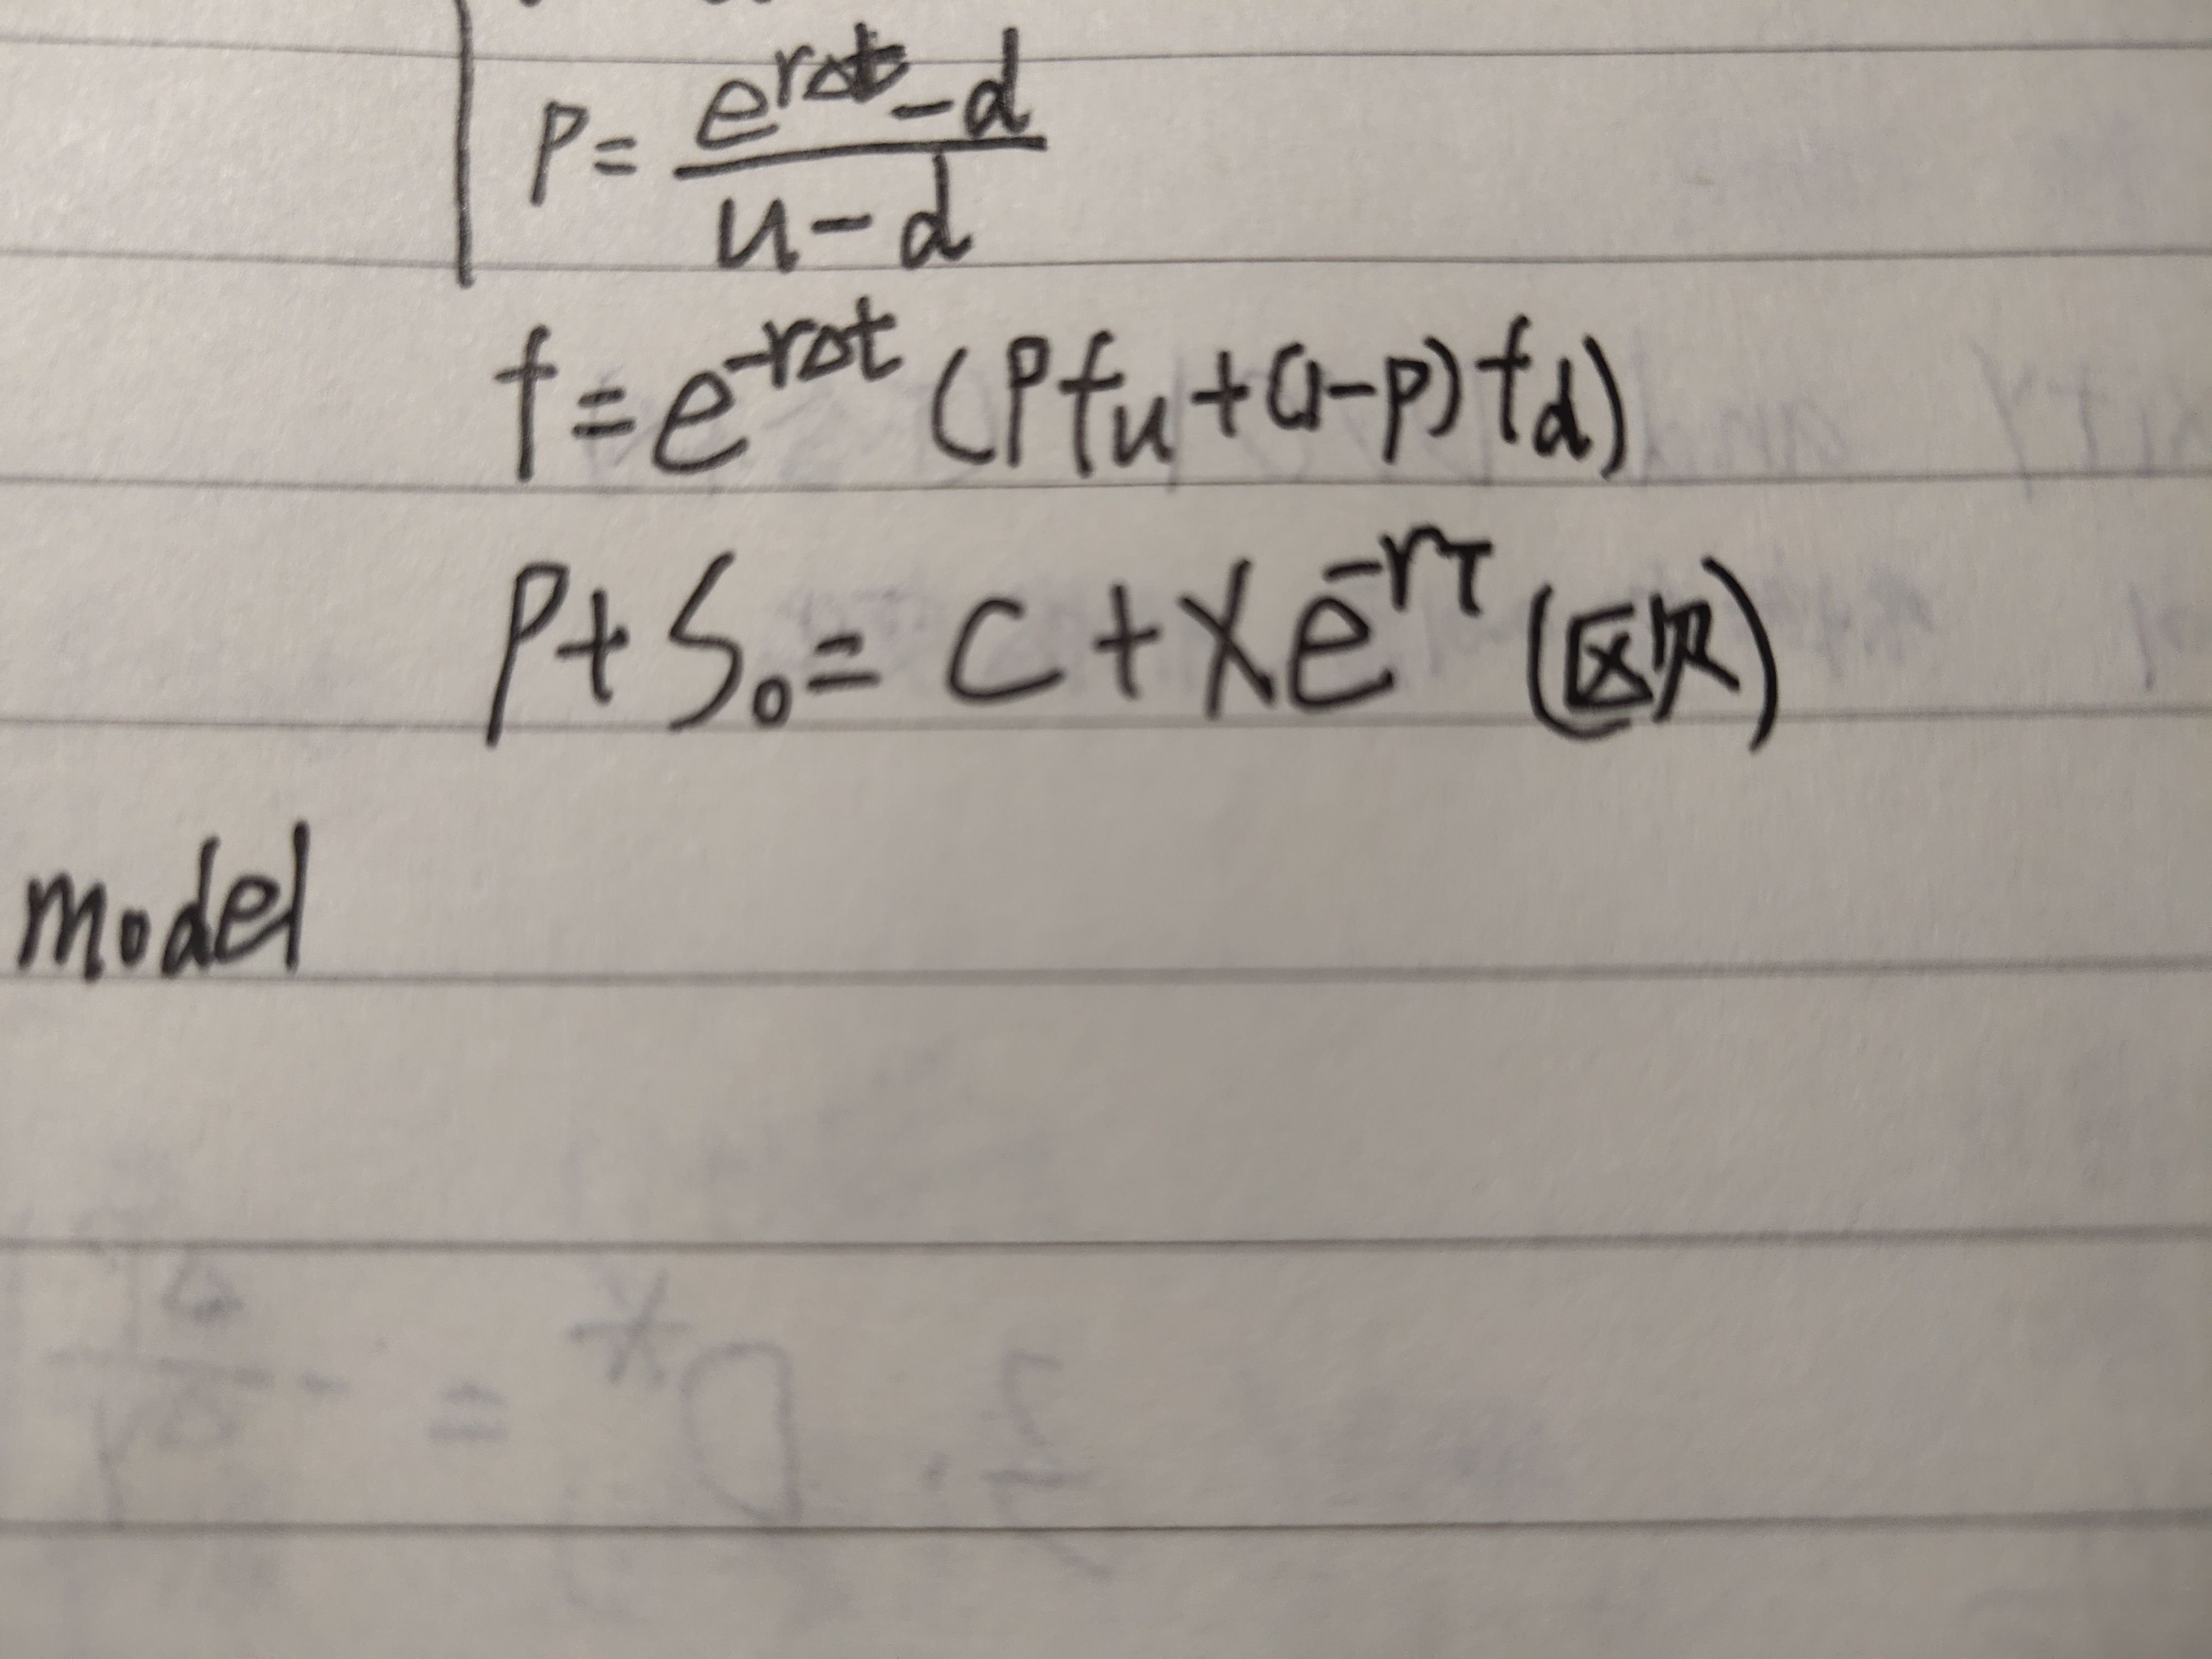 P = (e^{rΔt} - d) / (u - d)
f = e^{-rΔt} (P f_u + (1-P) f_d)
P + S_0 = C + Xe^{-rT} (欧)
model